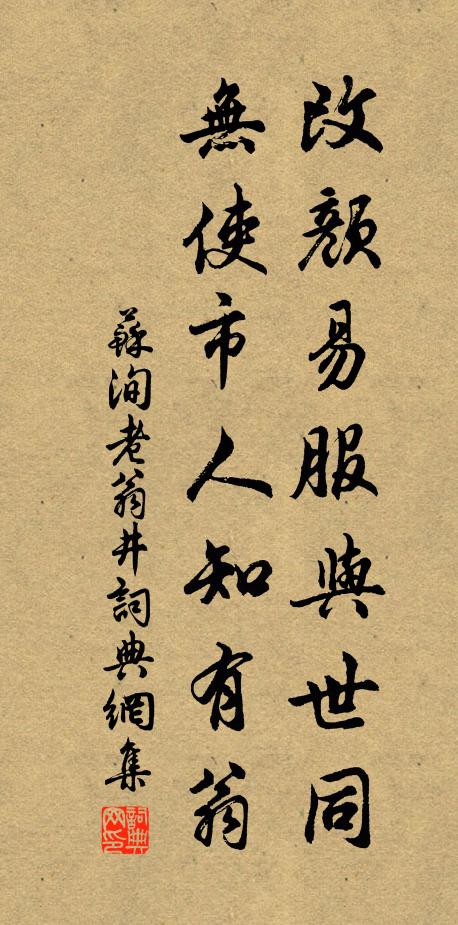 改顏易服與世同
無使市人知有翁
蘇洵老翁井詞典網集
詞典網印